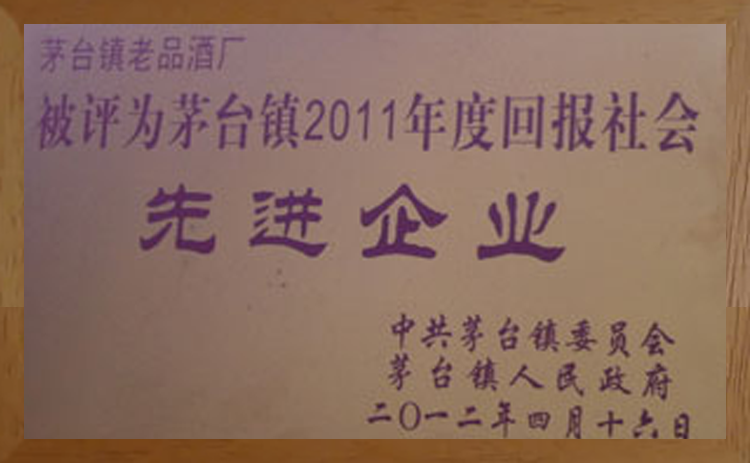 茅台镇老品酒厂
被评为茅台镇2011年度回报社会
先进企业
中共茅台镇委员会
茅台镇人民政府
二〇一二年四月十六日